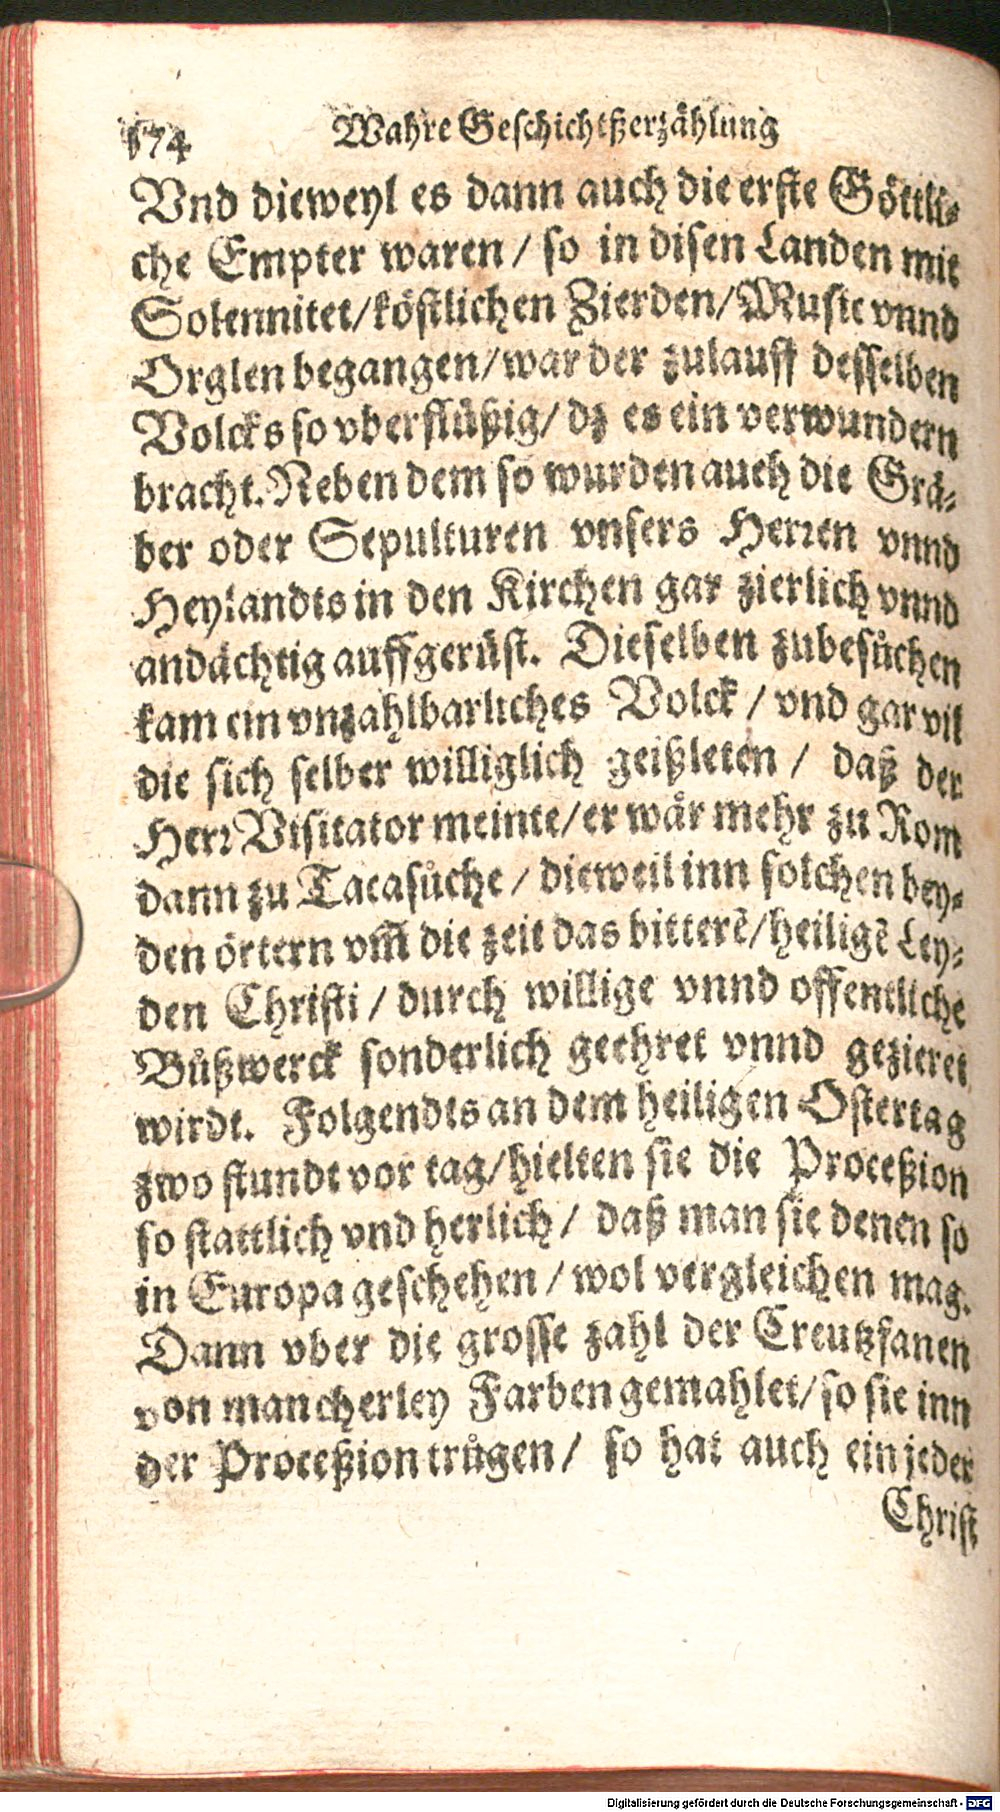 174 Wahre Geschichtßerzählung
Vnd dieweyl es dann auch die erste Göttli-
che Empter waren / so in disen Landen mit
Solennitet/köstlichen Zierden/Music vnnd
Orglen begangen/war der zulauff desselben
Volcks so vberflüßig/ dz es ein verwundern
bracht. Neben dem so wurden auch die Grä-
ber oder Sepulturen vnsers Herren vnnd
Heylandts in den Kirchen gar zierlich vnnd
andächtig auffgerüst. Dieselben zubesůchen
kam ein vnzahlbarliches Volck / vnd gar vil
die sich selber williglich geißleten / daß der
Herr Visitator meinte/er wår mehr zu Rom
dann zu Tacasůche / dieweil inn solchen bey-
den örtern vm̃ die zeit das bitterẽ/heiligẽ Ley-
den Christi / durch willige vnnd offentliche
Bůßwerck sonderlich geehret vnnd gezieret
wirdt. Folgendts an dem heiligen Ostertag
zwo stundt vor tag/hielten sie die Proceßion
so stattlich vnd herlich / daß man sie denen so
in Europa geschehen / wol vergleichen mag.
Dann vber die grosse zahl der Creutzfanen
von mancherley Farben gemahlet/so sie inn
der Proceßion trůgen / so hat auch ein jeder
Christ
Digitalisierung gefördert durch die Deutsche Forschungsgemeinschaft - DFG